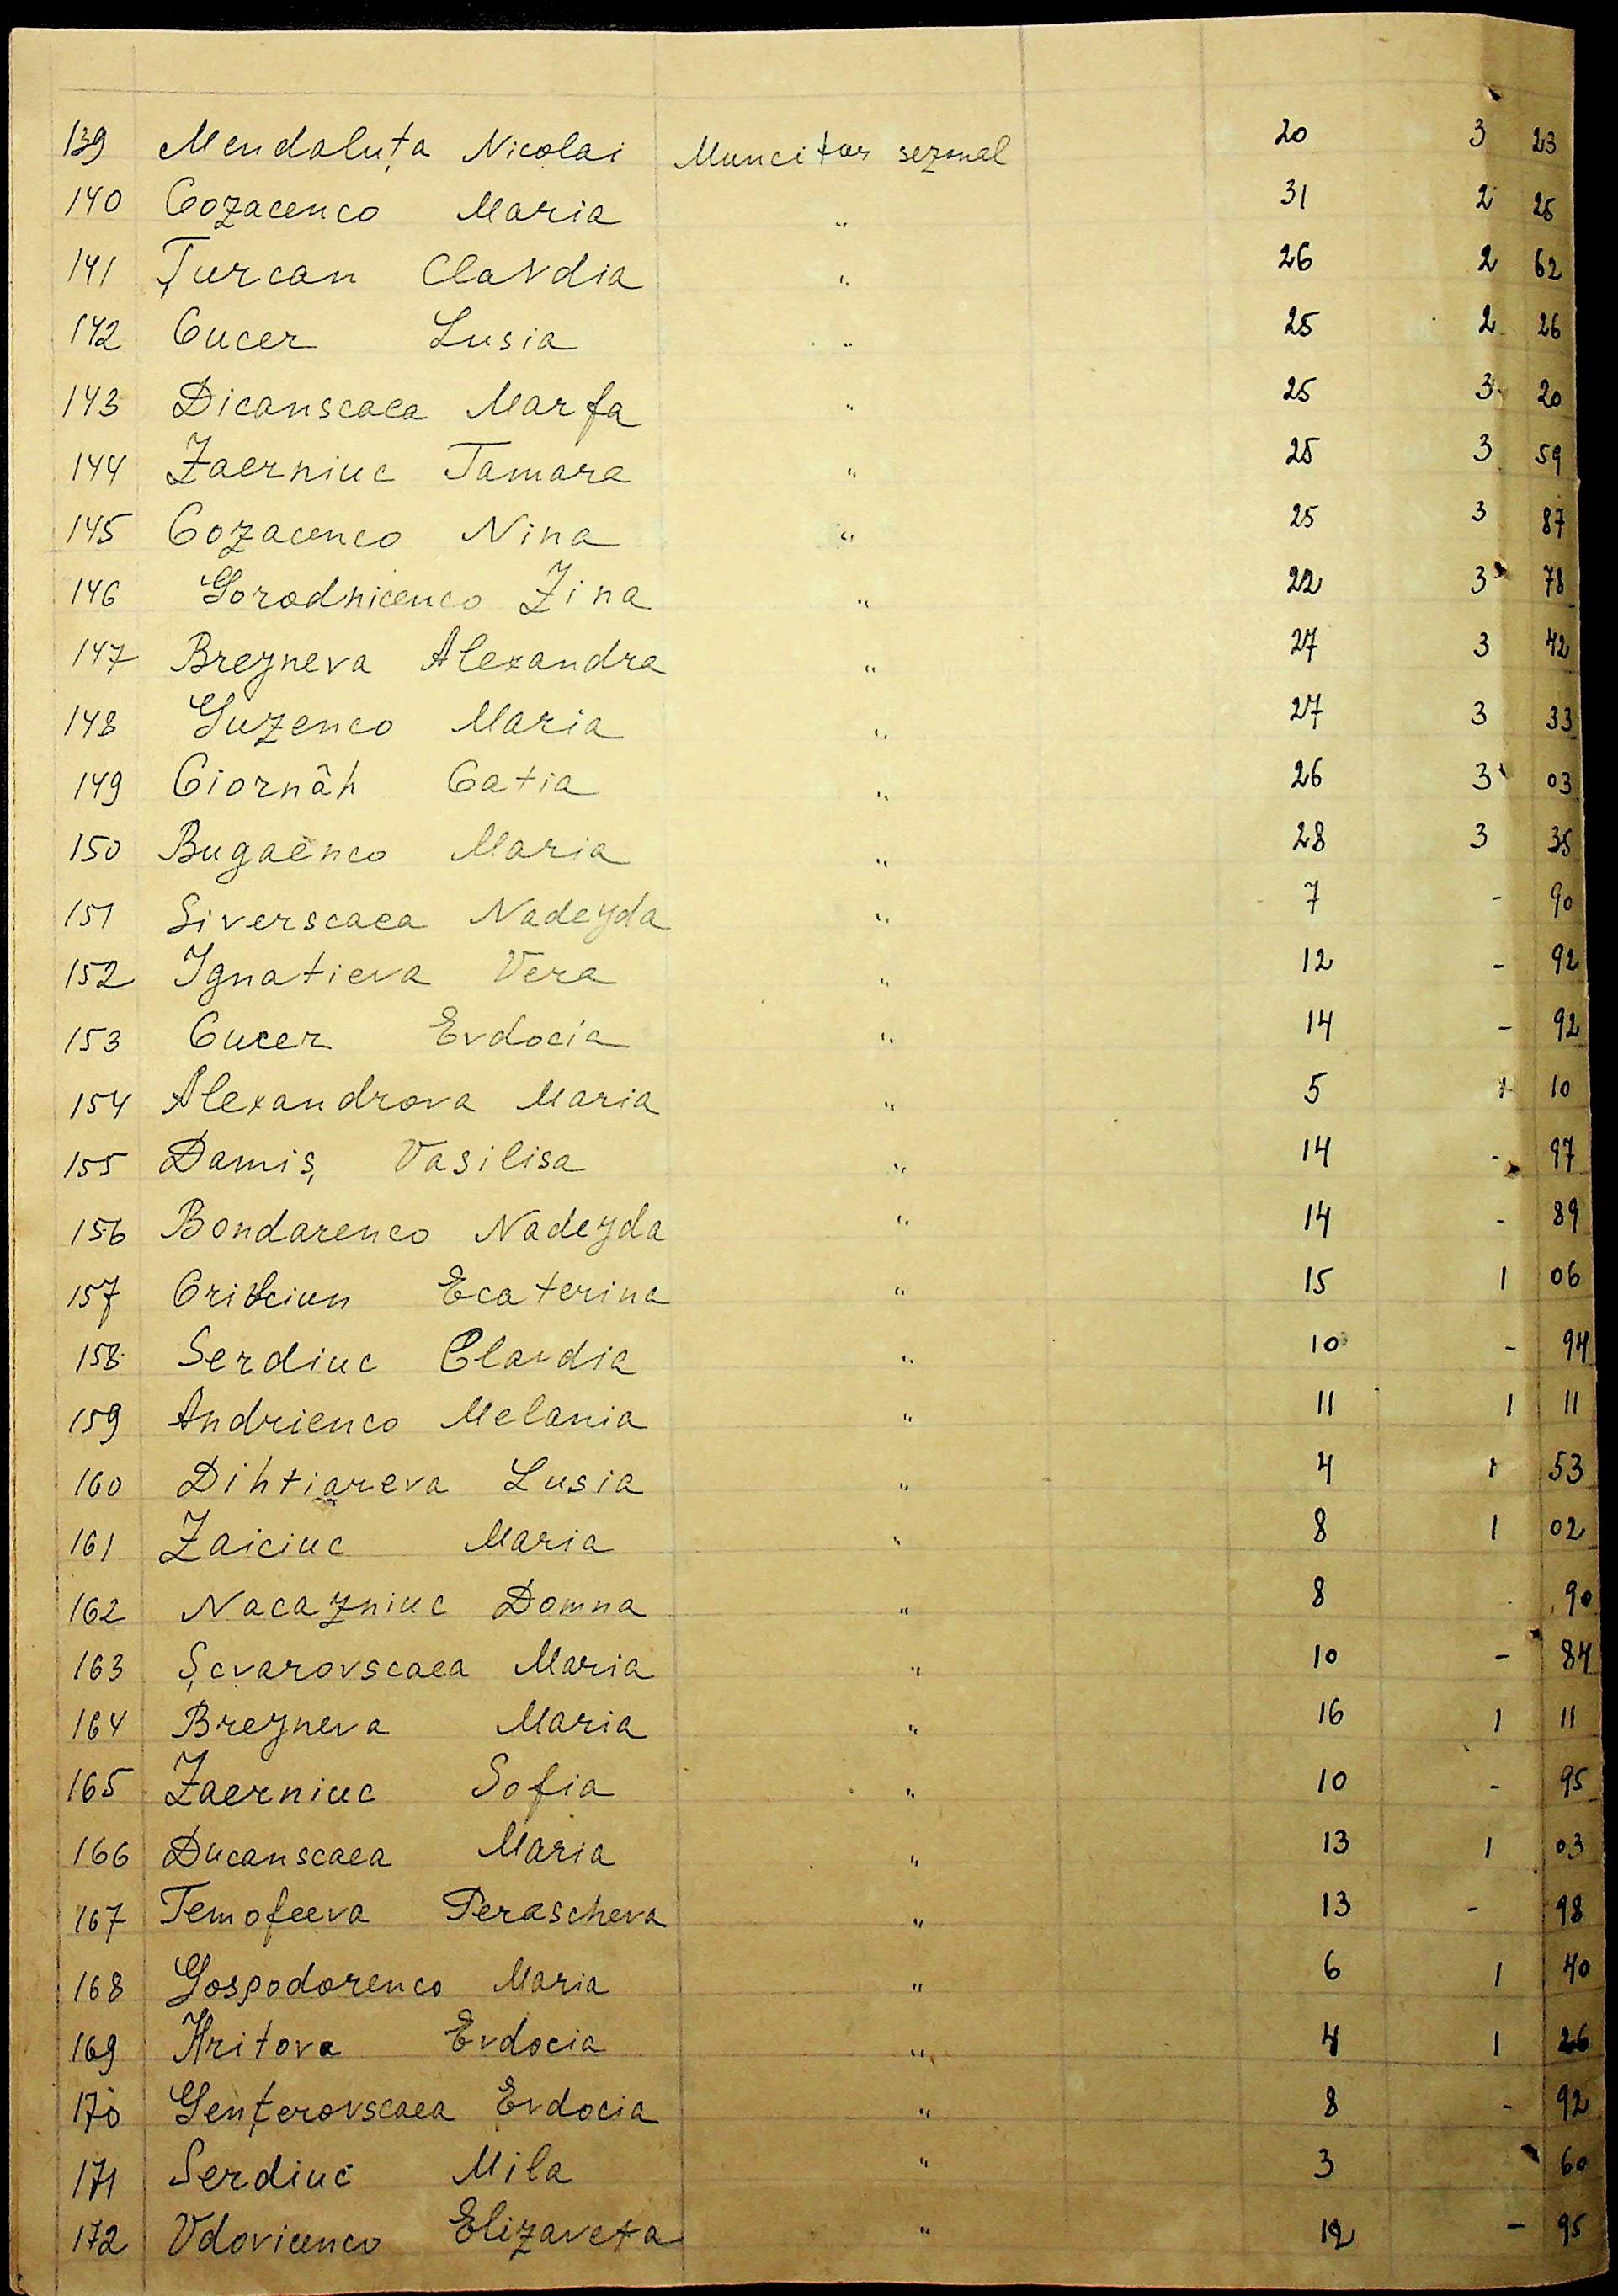 139 Mendaluța Nicolai Muncitor sezonal 20 3 23
140 Cozacenco Maria " 31 2 25
141 Țurcan Clavdia " 26 2 62
142 Cucer Lusia " 25 2 26
143 Dicanscaea Marfa " 25 3 20
144 Zaerniuc Tamara " 25 3 59
145 Cozacenco Nina " 25 3 87
146 Gorodnicenco Zina " 22 3 78
147 Brejneva Alexandra " 27 3 42
148 Guzenco Maria " 27 3 33
149 Ciornâh Catia " 26 3 03
150 Bugaenco Maria " 28 3 35
151 Siverscaea Nadejda " 7 - 90
152 Ignatieva Vera " 12 - 92
153 Cucer Evdocia " 14 - 92
154 Alexandrova Maria " 5 1 10
155 Damiș Vasilisa " 14 - 97
156 Bondarenco Nadejda " 14 - 89
157 Ecaterina " 15 1 06
158 Serdiuc Clavdia " 10 - 94
159 Andrienco Melania " 11 1 11
160 Dihtiareva Lusia " 4 1 53
161 Zaiciuc Maria " 8 1 02
162 Nacazniuc Domna " 8 90
163 Șcvarovscaea Maria " 10 - 84
164 Brejneva Maria " 16 1 11
165 Zaerniuc Sofia " 10 - 95
166 Ducanscaea Maria " 13 1 03
167 Temofeeva Perascheva " 13 - 98
168 Gospodorenco Maria " 6 1 40
169 Hritova Evdocia " 4 1 26
170 Gențerovscaea Evdocia " 8 - 92
171 Serdiuc Mila " 3 60
172 Vdovicenco Elizaveta " 12 - 95